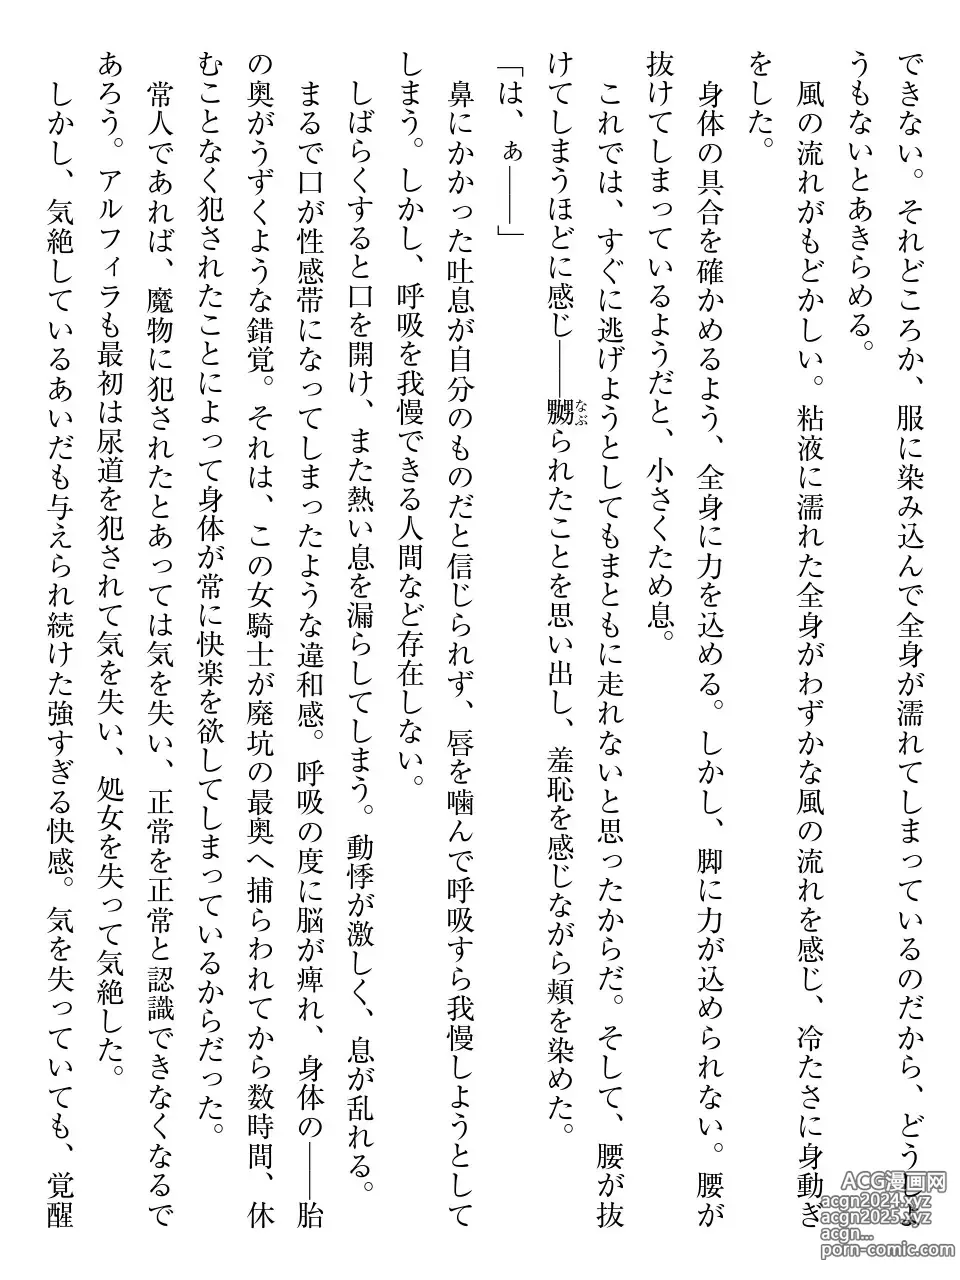 できない。それどころか、服に染み込んで全身が濡れてしまっているのだから、どうしよ
うもないとあきらめる。
風の流れがもどかしい。粘液に濡れた全身がわずかな風の流れを感じ、冷たさに身動ぎ
をした。
身体の具合を確かめるよう、全身に力を込める。しかし、脚に力が込められない。腰が
抜けてしまっているようだと、小さくため息。
これでは、すぐに逃げようとしてもまともに走れないと思ったからだ。そして、腰が抜
けてしまうほどに感じ――嬲られたことを思い出し、羞恥を感じながら頬を染めた。
なぶ
「は、ぁ――」
鼻にかかった吐息が自分のものだと信じられず、唇を噛んで呼吸すら我慢しようとして
しまう。しかし、呼吸を我慢できる人間など存在しない。
しばらくすると口を開け、また熱い息を漏らしてしまう。動悸が激しく、息が乱れる。
まるで口が性感帯になってしまったような違和感。呼吸の度に脳が痺れ、身体の――胎
の奥がうずくような錯覚。それは、この女騎士が廃坑の最奥へ捕らわれてから数時間、休
むことなく犯されたことによって身体が常に快楽を欲してしまっているからだった。
常人であれば、魔物に犯されたとあっては気を失い、正常を正常と認識できなくなるで
あろう。アルフィラも最初は尿道を犯されて気を失い、処女を失って気絶した。
しかし、気絶しているあいだも与えられ続けた強すぎる快感。気を失っていても、覚醒
ACG漫画网
acgn2024.xyz
acgn2025.xyz
acgn...
porn-comic.com